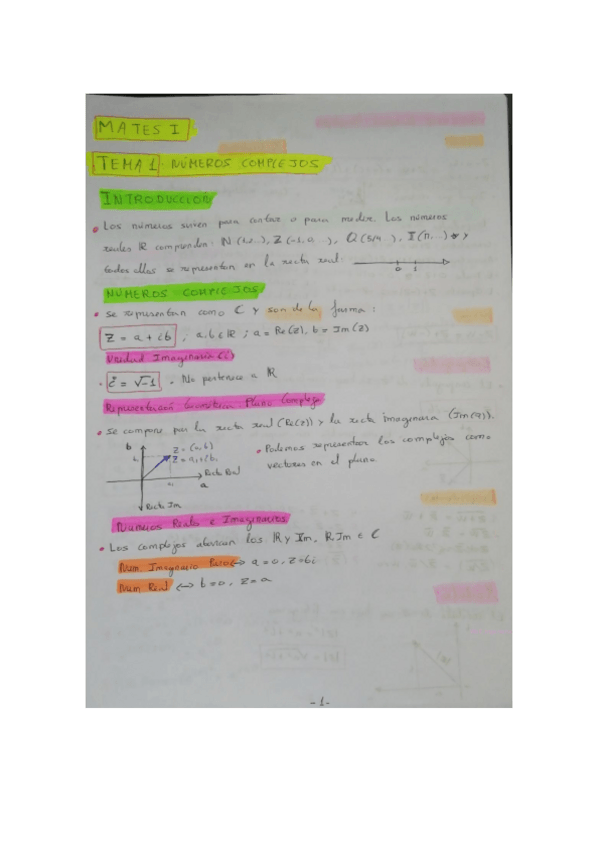 MATES I
TEMA 1 - NÚMEROS COMPLEJOS
INTRODUCCIÓN
• Los números sirven para contar o para medir. Los números
reales ℝ comprenden: N (1,2...), Z (-1,0...), Q (5/4...), I (π,...) y
todos ellos se representan en la recta real:
0 1
NÚMEROS COMPLEJOS
• Se representan como C y son de la forma:
Z = a + ib ; a, b ∈ ℝ ; a = Re(z), b = Im(z)
Unidad Imaginaria (i)
• i = √-1 • No pertenece a ℝ
Representación Geométrica Plano Complejo
• Se compone por la recta real (Re(z)) y la recta imaginaria (Im(z)).
b Z = (a,b)
b Z = a + ib
Recta Real
a
Recta Im
• Podemos representar los complejos como
vectores en el plano
Números Reales e Imaginarios
• Los complejos abarcan los ℝ y Im. ℝ, Im ∈ C
Num. Imaginario Puro ↔ a = 0, Z = bi
Num Real ↔ b = 0, Z = a
-1-